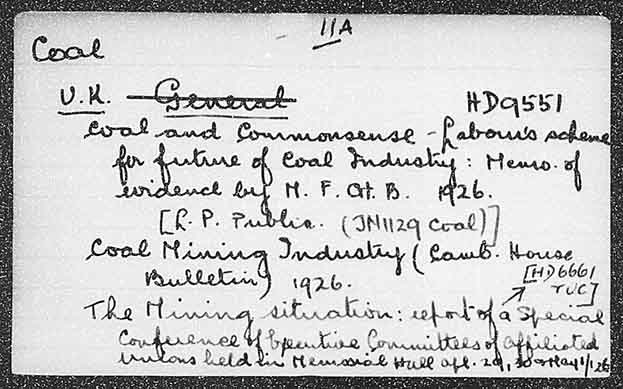 11A
Coal
U.K. General HD9551
Coal and Commonsense - Labour's scheme
for future of Coal Industry: Memo. of
evidence by M. F. G.B. 1926.
[L. P. Public. (JN1129 Coal)]
Coal Mining Industry (Lamb. House
Bulletin) 1926.
[HD6661
TUC]
The Mining situation: report of a Special
Conference of Executive Committees of affiliated
Unions held in Memorial Hall Apl. 29, 30 & May 1/26